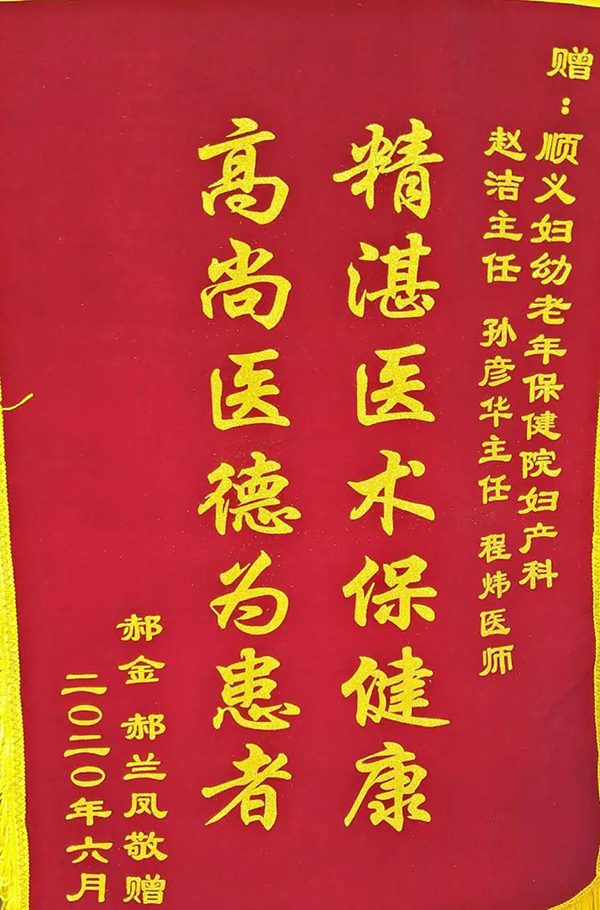 赠：顺义妇幼老年保健院妇产科
赵洁主任 孙彦华主任 程炜医师
精湛医术保健康
高尚医德为患者
郝金 郝兰凤敬赠
二〇二〇年六月